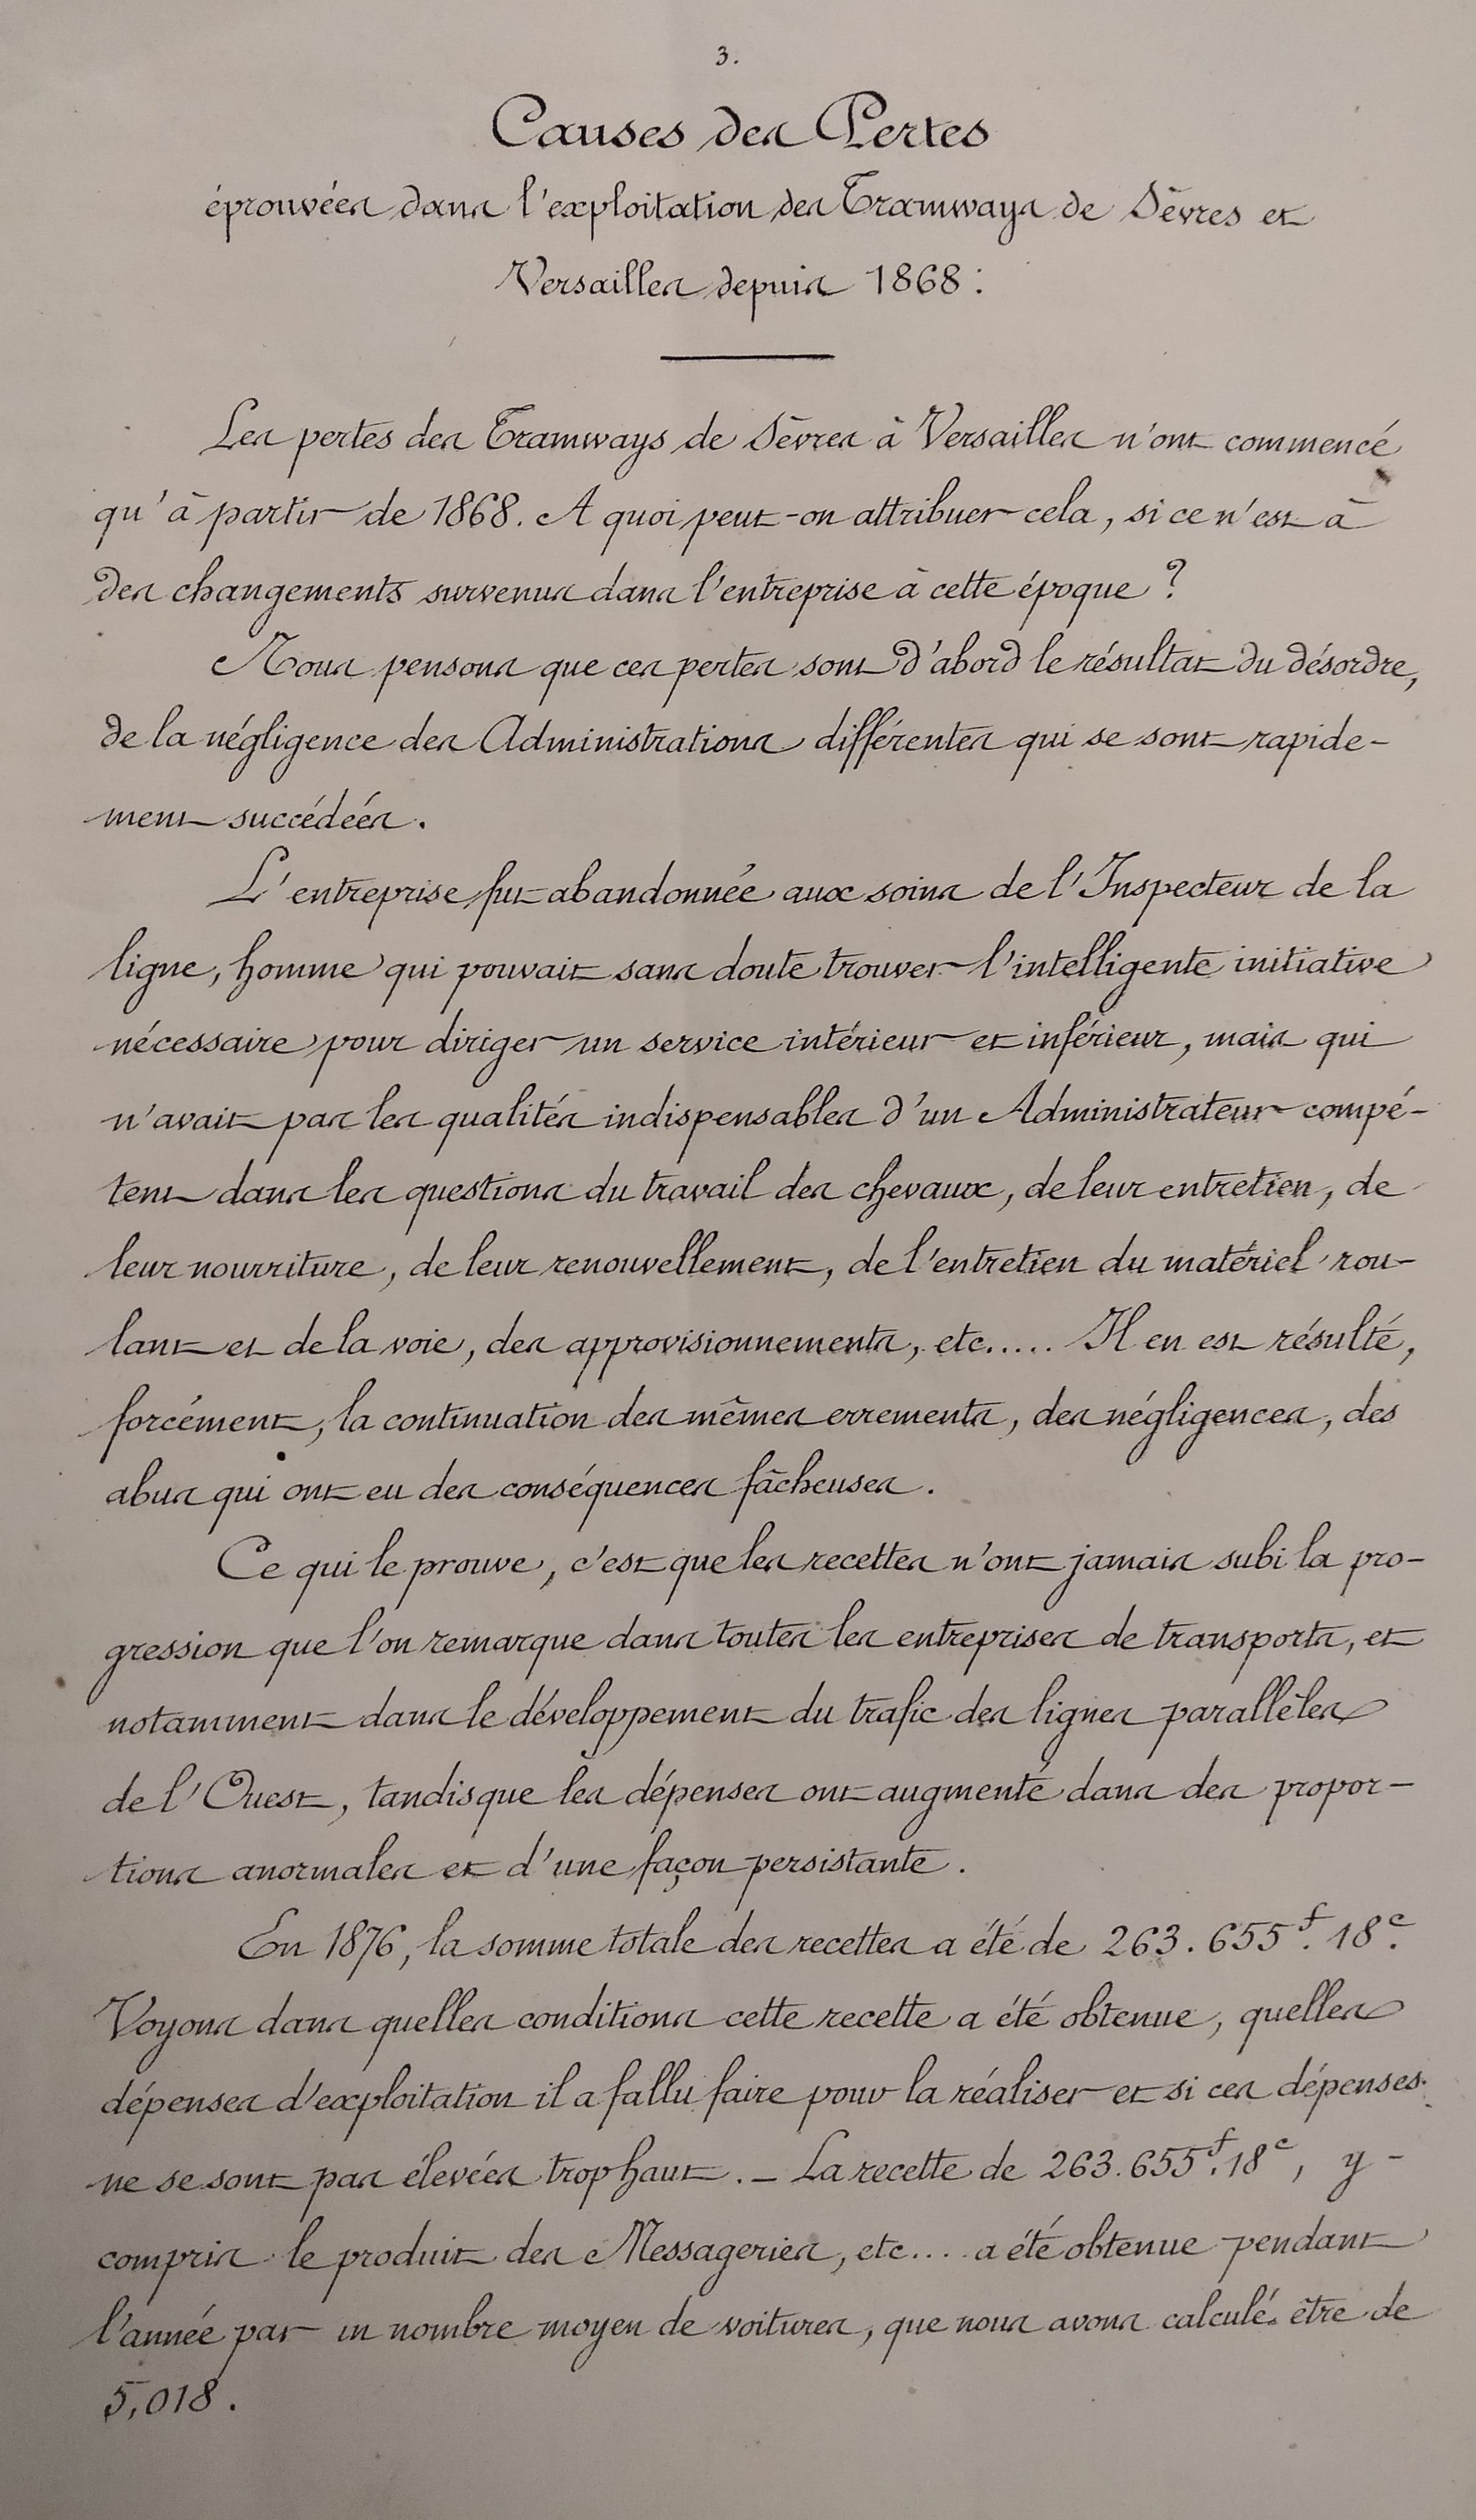 3.
Causes des Pertes
éprouvées dans l'exploitation des Tramways de Sèvres et
Versailles depuis 1868 :
Les pertes des Tramways de Sèvres à Versailles n'ont commencé
qu'à partir de 1868. A quoi peut-on attribuer cela, si ce n'est à
des changements survenus dans l'entreprise à cette époque ?
Nous pensons que ces pertes sont d'abord le résultat du désordre,
de la négligence des Administrations différentes qui se sont rapide-
ment succédées.
L'entreprise fut abandonnée aux soins de l'Inspecteur de la
ligne, homme qui pouvait sans doute trouver l'intelligente initiative
nécessaire pour diriger un service intérieur et inférieur, mais qui
n'avait pas les qualités indispensables d'un Administrateur compé-
tent dans les questions du travail des chevaux, de leur entretien, de
leur nourriture, de leur renouvellement, de l'entretien du matériel rou-
lant et de la voie, des approvisionnements, etc..... Il en est résulté,
forcément, la continuation des mêmes errements, des négligences, des
abus qui ont eu des conséquences fâcheuses.
Ce qui le prouve, c'est que les recettes n'ont jamais subi la pro-
gression que l'on remarque dans toutes les entreprises de transports, et
notamment dans le développement du trafic des lignes parallèles
de l'Ouest, tandisque les dépenses ont augmenté dans des propor-
tions anormales et d'une façon persistante.
En 1876, la somme totale des recettes a été de 263.655f.18c.
Voyons dans quelles conditions cette recette a été obtenue, quelles
dépenses d'exploitation il a fallu faire pour la réaliser et si ces dépenses
ne se sont pas élevées trop haut. – La recette de 263.655f.18c, y-
compris le produit des Messageries, etc.... a été obtenue pendant
l'année par un nombre moyen de voitures, que nous avons calculé être de
5,018.